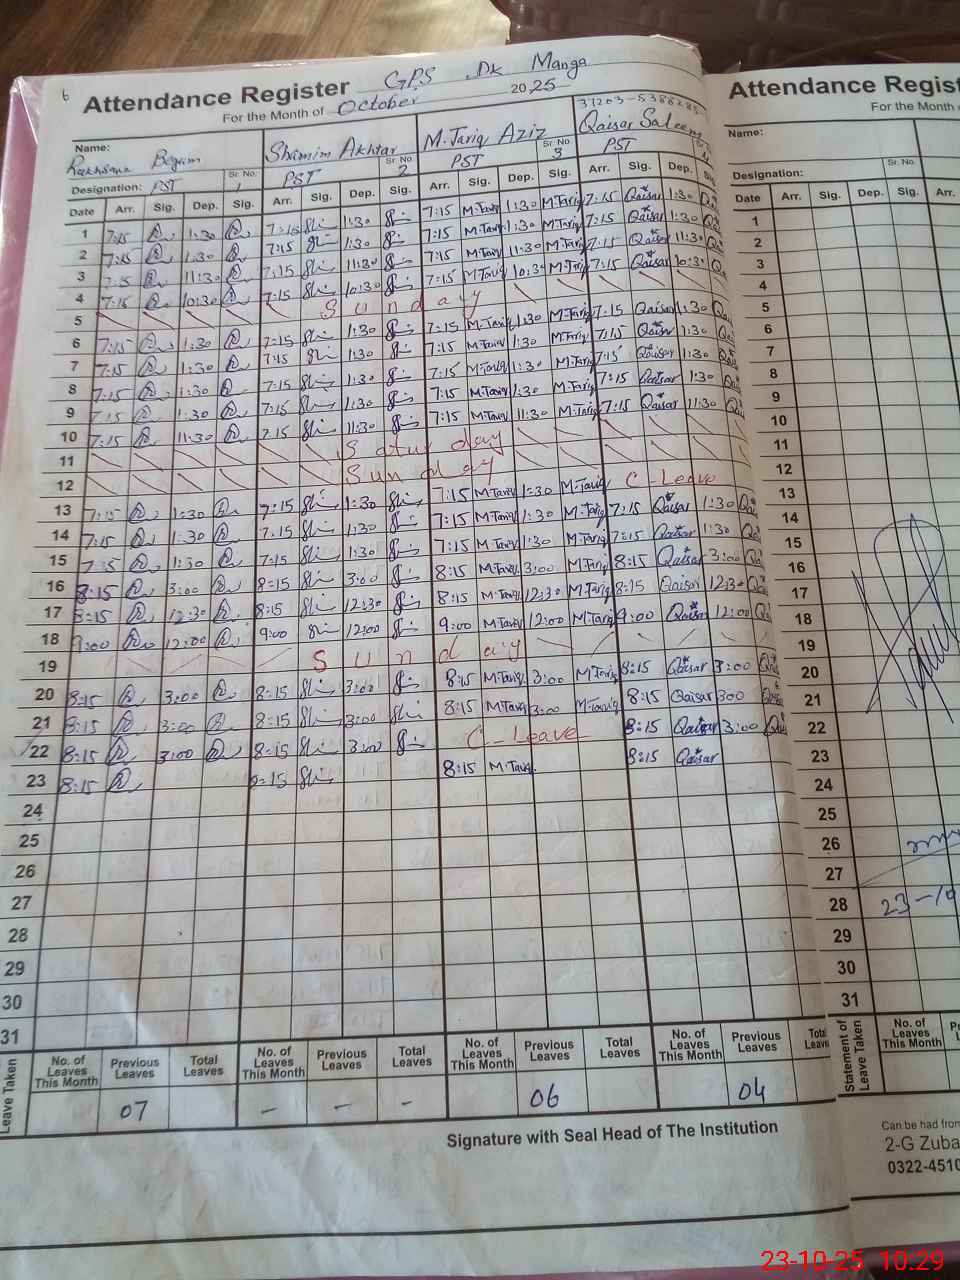 6 Attendance Register GPS Dk Manga
For the Month of October 2025
37203-5388285
Name: Rukhsana Begum Shamim Akhtar M. Tariq Aziz Qaisar Saleem
Designation: PST Sr. No. 1 PST Sr. No. 2 PST Sr. No. 3 PST
Date Arr. Sig. Dep. Sig. Arr. Sig. Dep. Sig. Arr. Sig. Dep. Sig. Arr. Sig. Dep.
1 7:15 1:30 7:15 1:30 7:15 M.Tariq 1:30 M.Tariq 7:15 Qaisar 1:30
2 7:15 1:30 7:15 1:30 7:15 M.Tariq 1:30 M.Tariq 7:15 Qaisar 1:30
3 7:15 11:30 7:15 11:30 7:15 M.Tariq 11:30 M.Tariq 7:15 Qaisar 11:30
4 7:15 10:30 7:15 10:30 7:15 M.Tariq 10:30 M.Tariq 7:15 Qaisar 10:30
5 Sunday
6 7:15 1:30 7:15 1:30 7:15 M.Tariq 1:30 M.Tariq 7:15 Qaisar 1:30
7 7:15 1:30 7:15 1:30 7:15 M.Tariq 1:30 M.Tariq 7:15 Qaisar 1:30
8 7:15 1:30 7:15 1:30 7:15 M.Tariq 1:30 M.Tariq 7:15 Qaisar 1:30
9 7:15 1:30 7:15 1:30 7:15 M.Tariq 1:30 M.Tariq 7:15 Qaisar 1:30
10 7:15 11:30 7:15 11:30 7:15 M.Tariq 11:30 M.Tariq 7:15 Qaisar 11:30
11 Saturday
12 Sunday
13 7:15 1:30 7:15 1:30 7:15 M.Tariq 1:30 M.Tariq C-Leave
14 7:15 1:30 7:15 1:30 7:15 M.Tariq 1:30 M.Tariq 7:15 Qaisar 1:30
15 7:15 1:30 7:15 1:30 7:15 M.Tariq 1:30 M.Tariq 7:15 Qaisar 1:30
16 8:15 3:00 8:15 3:00 8:15 M.Tariq 3:00 M.Tariq 8:15 Qaisar 3:00
17 8:15 12:30 8:15 12:30 8:15 M.Tariq 12:30 M.Tariq 8:15 Qaisar 12:30
18 9:00 12:00 9:00 12:00 9:00 M.Tariq 12:00 M.Tariq 9:00 Qaisar 12:00
19 Sunday
20 8:15 3:00 8:15 3:00 8:15 M.Tariq 3:00 M.Tariq 8:15 Qaisar 3:00
21 8:15 3:00 8:15 3:00 8:15 M.Tariq 3:00 M.Tariq 8:15 Qaisar 300
22 8:15 3:00 8:15 3:00 C-Leave 8:15 Qaisar 3:00
23 8:15 8:15 8:15 M.Tariq 8:15 Qaisar
24
25
26
27
28
29
30
31
Leave Taken No. of Leaves This Month Previous Leaves Total Leaves No. of Leaves This Month Previous Leaves Total Leaves No. of Leaves This Month Previous Leaves Total Leaves No. of Leaves This Month Previous Leaves
07 - - - 06 04
Signature with Seal Head of The Institution
Attendance Register
For the Month
Name:
Designation: Sr. No.
Date Arr. Sig. Dep. Sig. Arr.
1
2
3
4
5
6
7
8
9
10
11
12
13
14
15
16
17
18
19
20
21
22
23
24
25
26
27
28 23-10
29
30
31
Statement of Leave Taken No. of Leaves This Month Previous Leaves
Can be had from
2-G Zuba
0322-4510
23-10-25 10:29